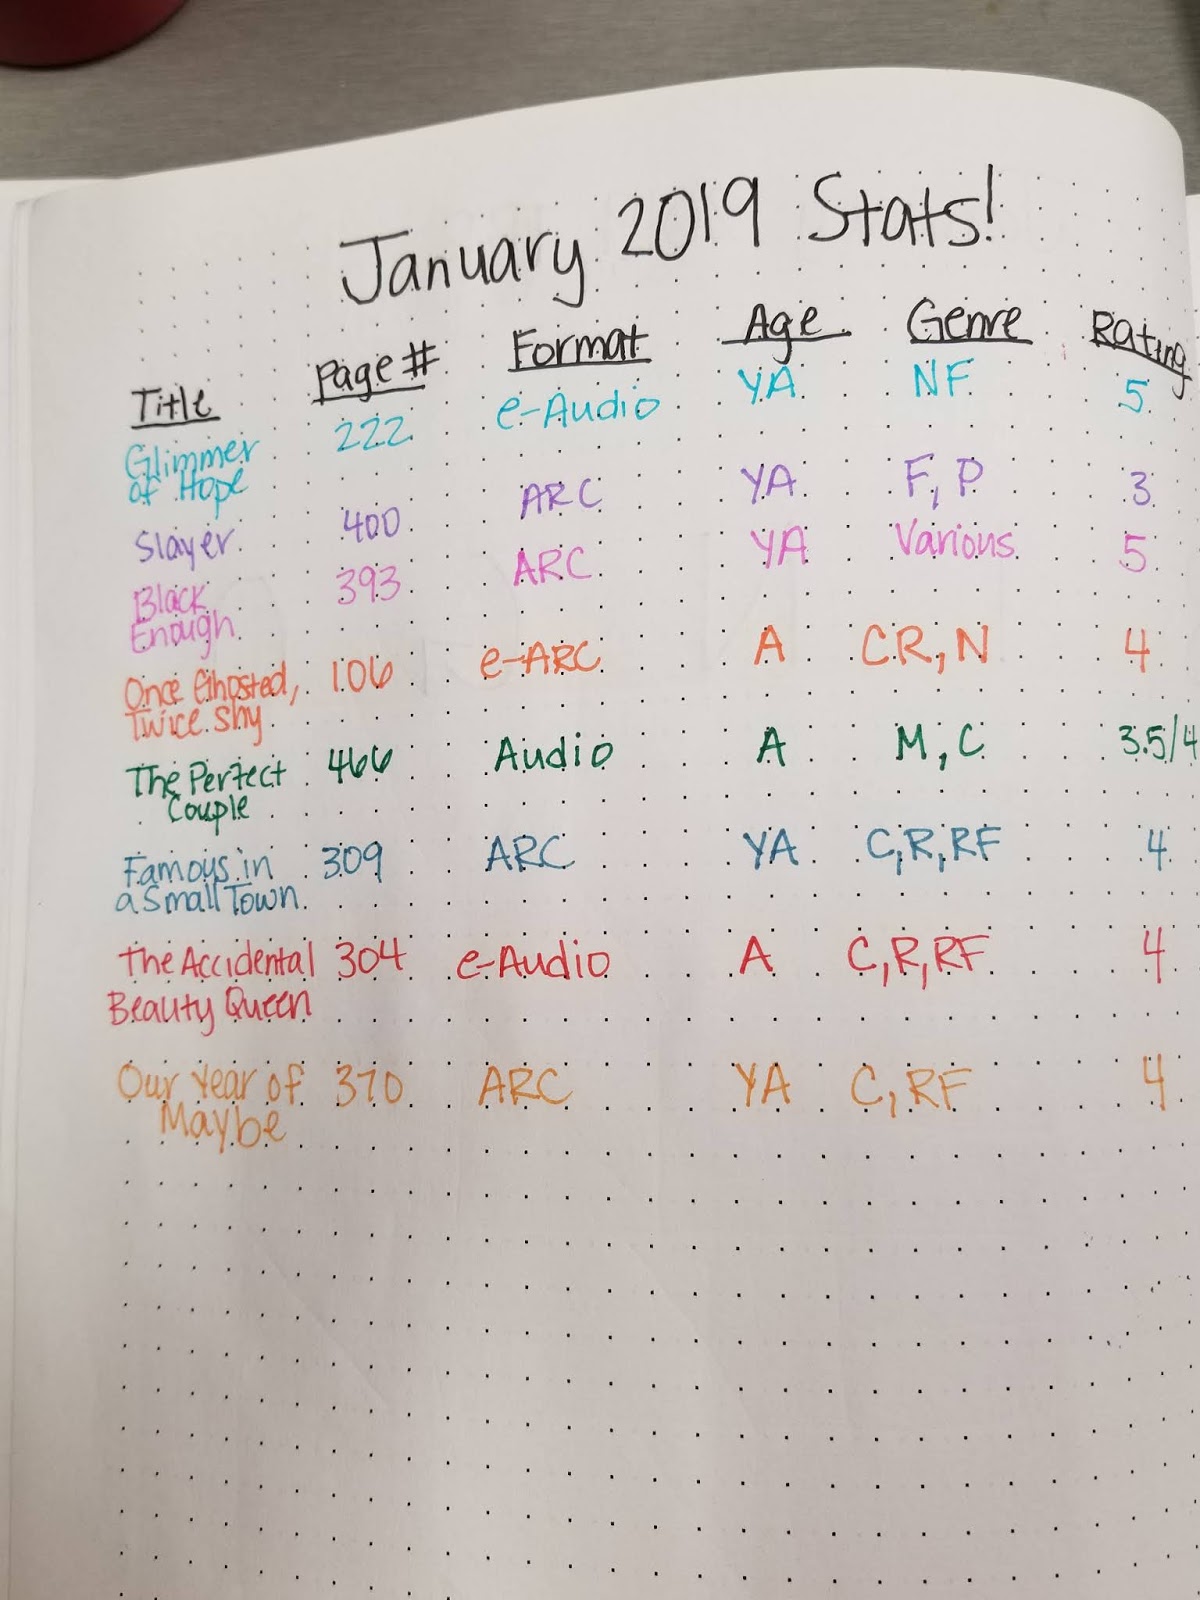 January 2019 Stats!
Title Page # Format Age Genre Rating
Glimmer of Hope 222 e-Audio YA NF 5
Slayer 400 ARC YA F, P 3
Black Enough 393 ARC YA Various 5
Once Ghosted, Twice Shy 106 e-ARC A CR, N 4
The Perfect Couple 466 Audio A M, C 3.5/4
Famous in a Small Town 309 ARC YA C, R, RF 4
The Accidental Beauty Queen 304 e-Audio A C, R, RF 4
Our Year of Maybe 370 ARC YA C, RF 4